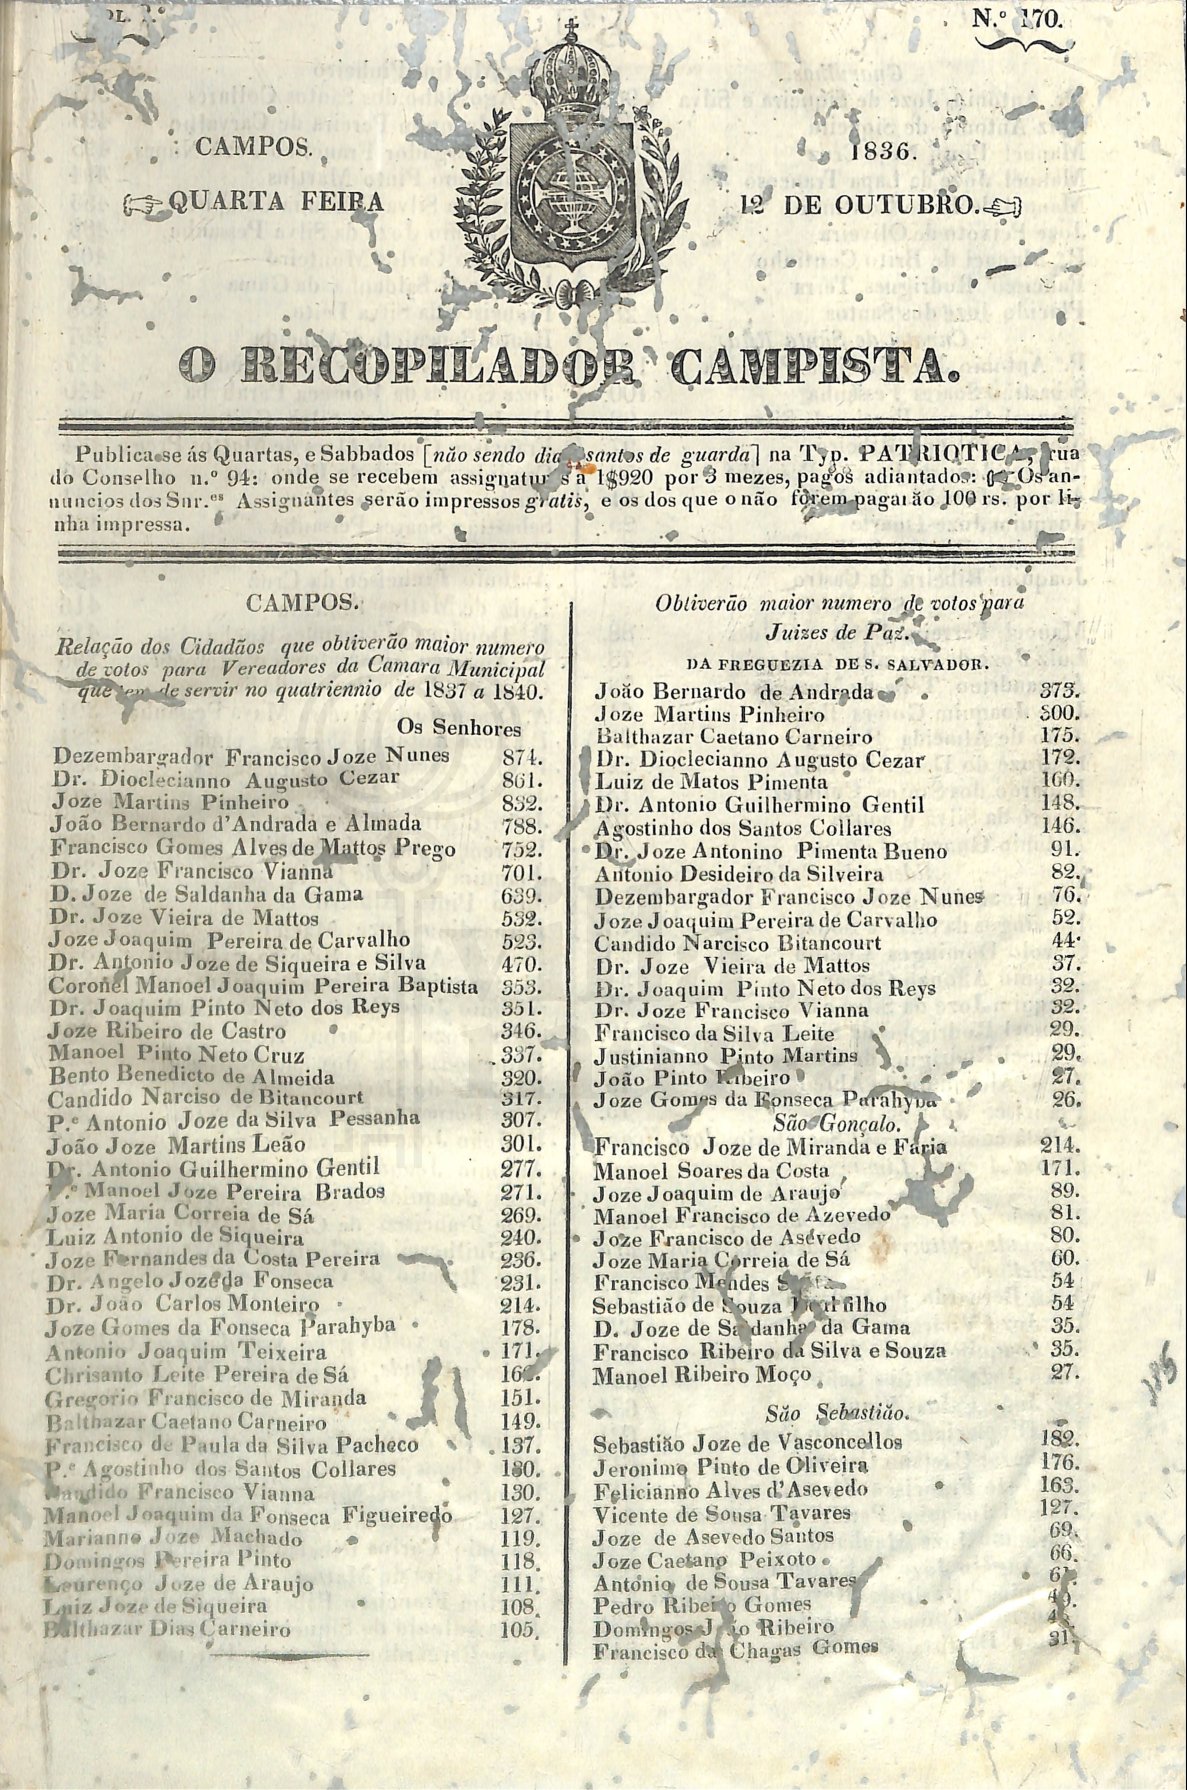 N.º 170.
CAMPOS.
1836.
QUARTA FEIRA
12 DE OUTUBRO.
O RECOPILADOR CAMPISTA.
Publica-se ás Quartas, e Sabbados [não sendo dias santos de guarda] na Typ. PATRIOTICA, rua
do Conselho n.º 94: onde se recebem assignaturas a 1$920 por 3 mezes, pagos adiantados: Os an-
nuncios dos Snr.es Assignantes serão impressos gratis, e os dos que o não forem pagarão 100 rs. por li-
nha impressa.
CAMPOS.
Relação dos Cidadãos que obtiverão maior numero
de votos para Vereadores da Camara Municipal
que tem de servir no quatriennio de 1837 a 1840.
Os Senhores
Dezembargador Francisco Joze Nunes 874.
Dr. Dioclecianno Augusto Cezar 861.
Joze Martins Pinheiro 832.
João Bernardo d'Andrada e Almada 788.
Francisco Gomes Alves de Mattos Prego 752.
Dr. Joze Francisco Vianna 701.
D. Joze de Saldanha da Gama 639.
Dr. Joze Vieira de Mattos 532.
Joze Joaquim Pereira de Carvalho 523.
Dr. Antonio Joze de Siqueira e Silva 470.
Coronel Manoel Joaquim Pereira Baptista 353.
Dr. Joaquim Pinto Neto dos Reys 351.
Joze Ribeiro de Castro 346.
Manoel Pinto Neto Cruz 337.
Bento Benedicto de Almeida 320.
Candido Narciso de Bitancourt 317.
P.e Antonio Joze da Silva Pessanha 307.
João Joze Martins Leão 301.
Dr. Antonio Guilhermino Gentil 277.
P.e Manoel Joze Pereira Brados 271.
Joze Maria Correia de Sá 269.
Luiz Antonio de Siqueira 240.
Joze Fernandes da Costa Pereira 236.
Dr. Angelo Joze da Fonseca 231.
Dr. João Carlos Monteiro 214.
Joze Gomes da Fonseca Parahyba 178.
Antonio Joaquim Teixeira 171.
Chrisanto Leite Pereira de Sá
Gregorio Francisco de Miranda 151.
Balthazar Caetano Carneiro 149.
Francisco de Paula da Silva Pacheco 137.
P.e Agostinho dos Santos Collares 130.
Candido Francisco Vianna 130.
Manoel Joaquim da Fonseca Figueiredo 127.
Marianno Joze Machado 119.
Domingos Pereira Pinto 118.
Lourenço Joze de Araujo 111.
Luiz Joze de Siqueira 108.
Balthazar Dias Carneiro 105.
Obtiverão maior numero de votos para
Juizes de Paz.
DA FREGUEZIA DE S. SALVADOR.
João Bernardo de Andrada 373.
Joze Martins Pinheiro 300.
Balthazar Caetano Carneiro 175.
Dr. Dioclecianno Augusto Cezar 172.
Luiz de Matos Pimenta 160.
Dr. Antonio Guilhermino Gentil 148.
Agostinho dos Santos Collares 146.
Dr. Joze Antonino Pimenta Bueno 91.
Antonio Desideiro da Silveira 82.
Dezembargador Francisco Joze Nunes 76.
Joze Joaquim Pereira de Carvalho 52.
Candido Narcisco Bitancourt 44.
Dr. Joze Vieira de Mattos 37.
Dr. Joaquim Pinto Neto dos Reys 32.
Dr. Joze Francisco Vianna 32.
Francisco da Silva Leite 29.
Justinianno Pinto Martins 29.
João Pinto Ribeiro 27.
Joze Gomes da Fonseca Parahyba 26.
São Gonçalo.
Francisco Joze de Miranda e Faria 214.
Manoel Soares da Costa 171.
Joze Joaquim de Araujo 89.
Manoel Francisco de Azevedo 81.
Joze Francisco de Asevedo 80.
Joze Maria Correia de Sá 60.
Francisco Mendes 54
Sebastião de Souza filho 54
D. Joze de Saldanha da Gama 35.
Francisco Ribeiro da Silva e Souza 35.
Manoel Ribeiro Moço 27.
São Sebastião.
Sebastião Joze de Vasconcellos 182.
Jeronimo Pinto de Oliveira 176.
Felicianno Alves d'Asevedo 163.
Vicente de Sousa Tavares 127.
Joze de Asevedo Santos 69.
Joze Caetano Peixoto 66.
Antonio de Sousa Tavares
Pedro Ribeiro Gomes
Domingos João Ribeiro
Francisco da Chagas Gomes 31.